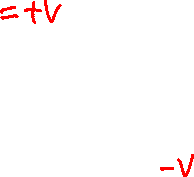 =+V
-V